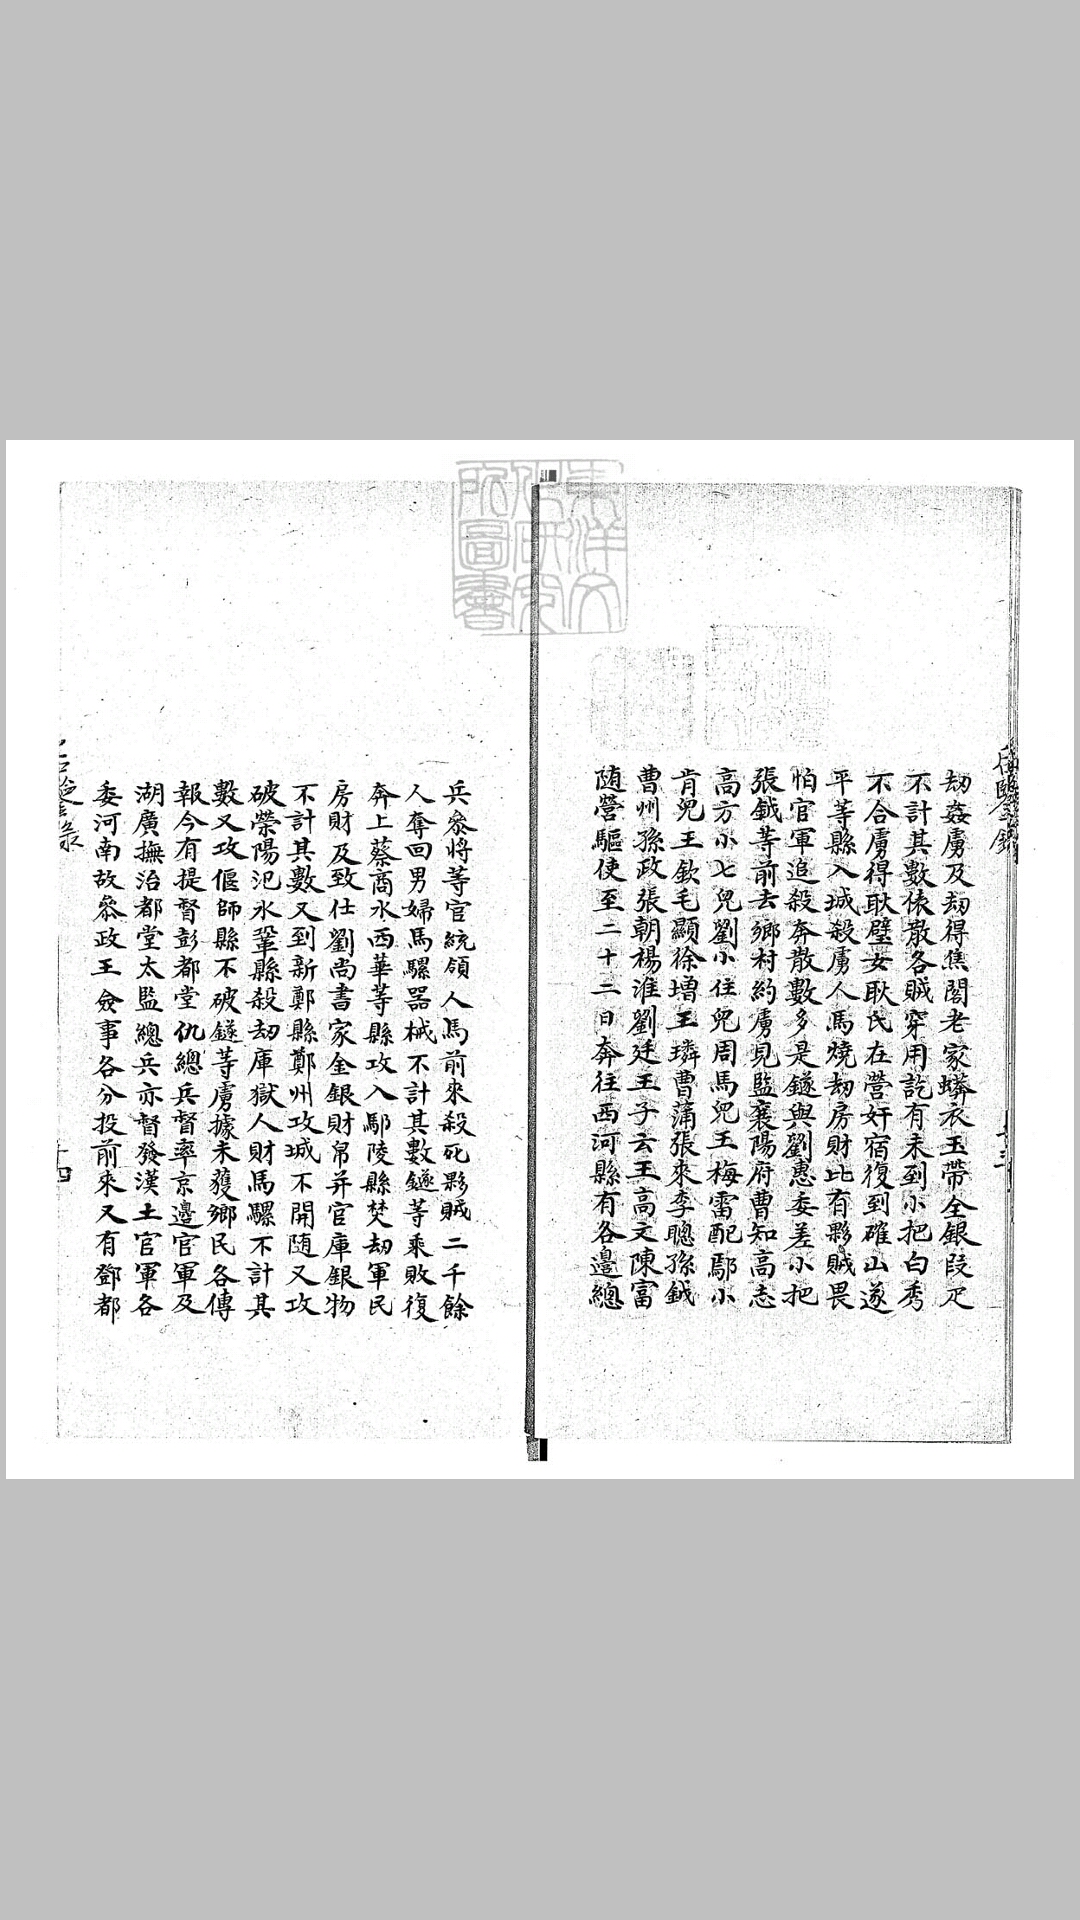 劫姦虜及刼得焦閣老家蟒衣玉帶金銀段疋
不計其數俵散各賊穿用訖有未到小把白秀
不合虜得耿璧女耿氏在營奸宿復到確山遂
平等縣入城殺虜人馬燒劫房財比有夥賊畏
怕官軍追殺奔散數多是鐩與劉惠委差小把
張鉞等前去鄉村約虜見監襄陽府曹知高志
高方小七兒劉小住兒周馬兒王梅雷配鄢小
肯兒王欽毛顯徐增王璘曹蒲張來李聰孫鉞
曹州孫政張朝楊淮劉廷王子云王高文陳富
随營驅使至二十二日奔往西河縣有各邊總
兵叅將等官統領人馬前來殺死夥賊二千餘
人奪回男婦馬騾器械不計其數鐩等乘敗復
奔上蔡商水西華等縣攻入鄢陵縣焚劫軍民
房財及致仕劉尚書家金銀財帛并官庫銀物
不計其數又到新鄭縣鄭州攻城不開随又攻
破滎陽汜水鞏縣殺劫庫獄人財馬騾不計其
數又攻偃師縣不破鐩等虜據未獲鄉民各傳
報今有提督彭都堂仇總兵督率京邊官軍及
湖廣撫治都堂太監總兵亦督發漢土官軍各
委河南故叅政王僉事各分投前來又有鄧都
十四